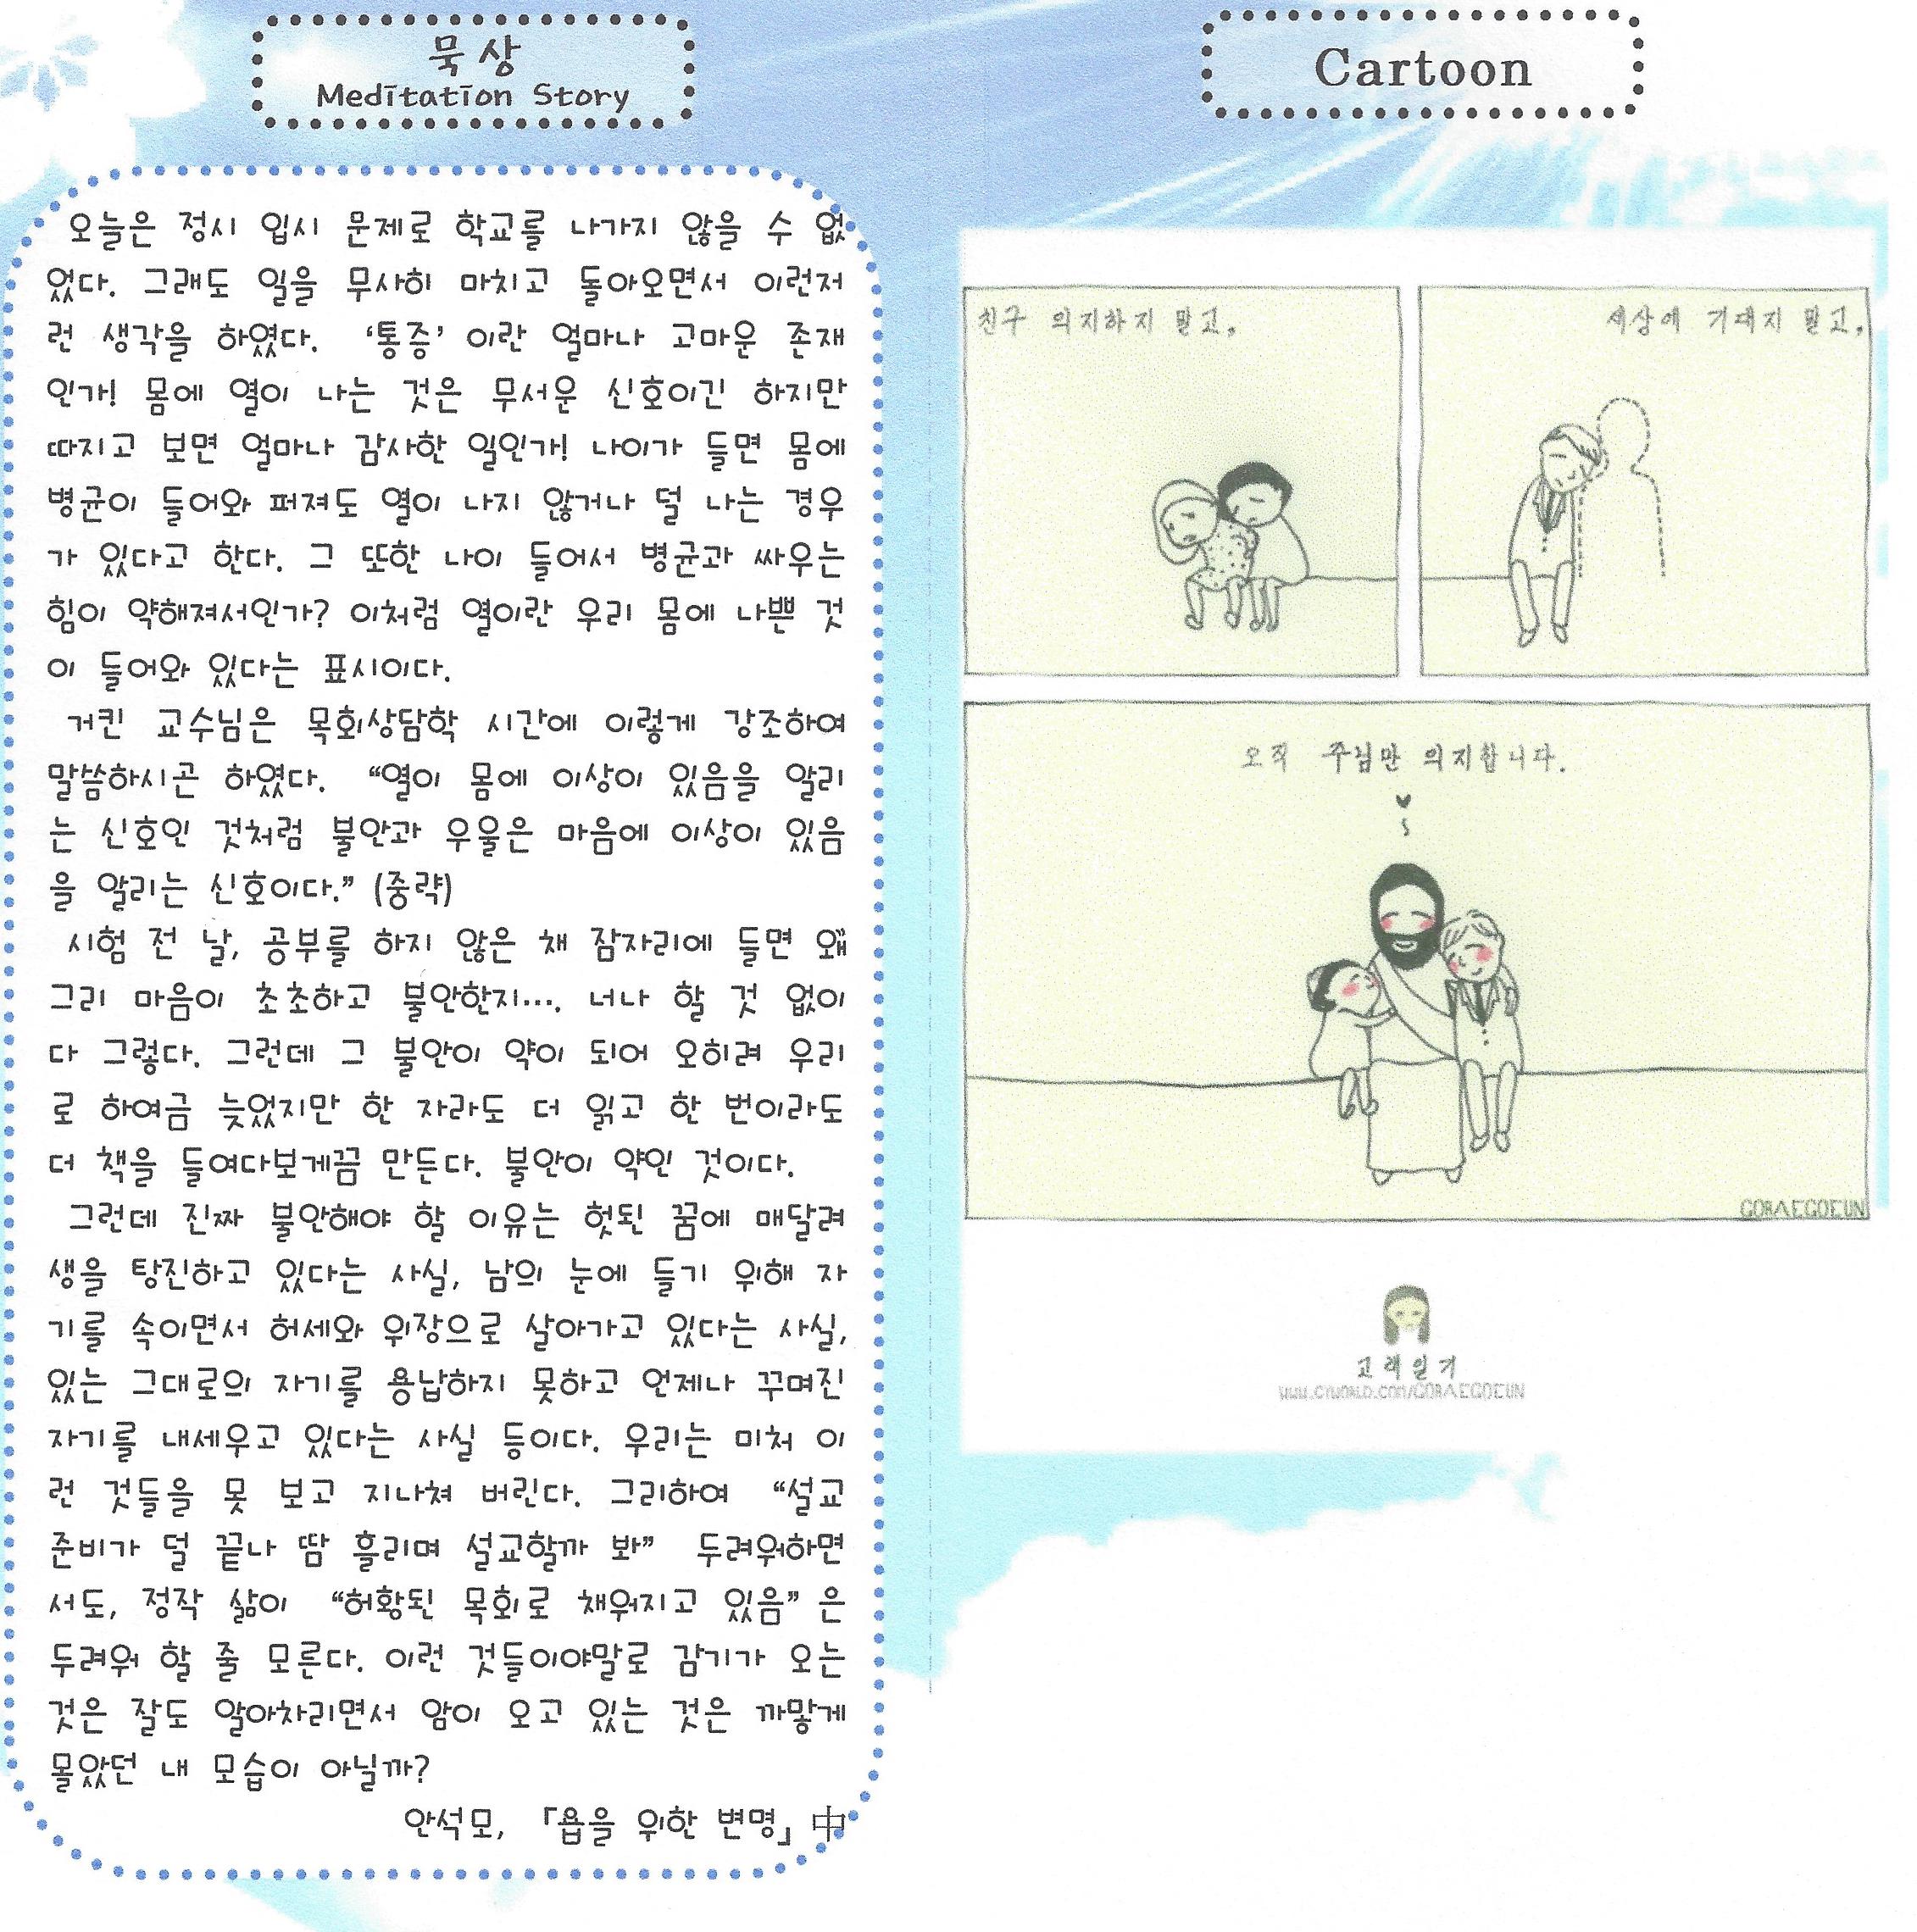 묵상
Meditation Story
오늘은 정시 입시 문제로 학교를 나가지 않을 수 없
었다. 그래도 일을 무사히 마치고 돌아오면서 이런저
런 생각을 하였다. ‘통증’이란 얼마나 고마운 존재
인가! 몸에 열이 나는 것은 무서운 신호이긴 하지만
따지고 보면 얼마나 감사한 일인가! 나이가 들면 몸에
병균이 들어와 퍼져도 열이 나지 않거나 덜 나는 경우
가 있다고 한다. 그 또한 나이 들어서 병균과 싸우는
힘이 약해져서인가? 이처럼 열이란 우리 몸에 나쁜 것
이 들어와 있다는 표시이다.
거킨 교수님은 목회상담학 시간에 이렇게 강조하여
말씀하시곤 하였다. “열이 몸에 이상이 있음을 알리
는 신호인 것처럼 불안과 우울은 마음에 이상이 있음
을 알리는 신호이다.” (중략)
시험 전 날, 공부를 하지 않은 채 잠자리에 들면 왜
그리 마음이 초초하고 불안한지…. 너나 할 것 없이
다 그렇다. 그런데 그 불안이 약이 되어 오히려 우리
로 하여금 늦었지만 한 자라도 더 읽고 한 번이라도
더 책을 들여다보게끔 만든다. 불안이 약인 것이다.
그런데 진짜 불안해야 할 이유는 헛된 꿈에 매달려
생을 탕진하고 있다는 사실, 남의 눈에 들기 위해 자
기를 속이면서 허세와 위장으로 살아가고 있다는 사실,
있는 그대로의 자기를 용납하지 못하고 언제나 꾸며진
자기를 내세우고 있다는 사실 등이다. 우리는 미처 이
런 것들을 못 보고 지나쳐 버린다. 그리하여 “설교
준비가 덜 끝나 땀 흘리며 설교할까 봐” 두려워하면
서도, 정작 삶이 “허황된 목회로 채워지고 있음”은
두려워 할 줄 모른다. 이런 것들이야말로 감기가 오는
것은 잘도 알아차리면서 암이 오고 있는 것은 까맣게
몰았던 내 모습이 아닐까?
안석모, 「욥을 위한 변명」 中
Cartoon
친구 의지하지 말고,
세상에 기대지 말고,
오직 주님만 의지합니다.
GORAEGOEUN
고래일기
WWW.CYWORLD.COM/GORAEGOEUN